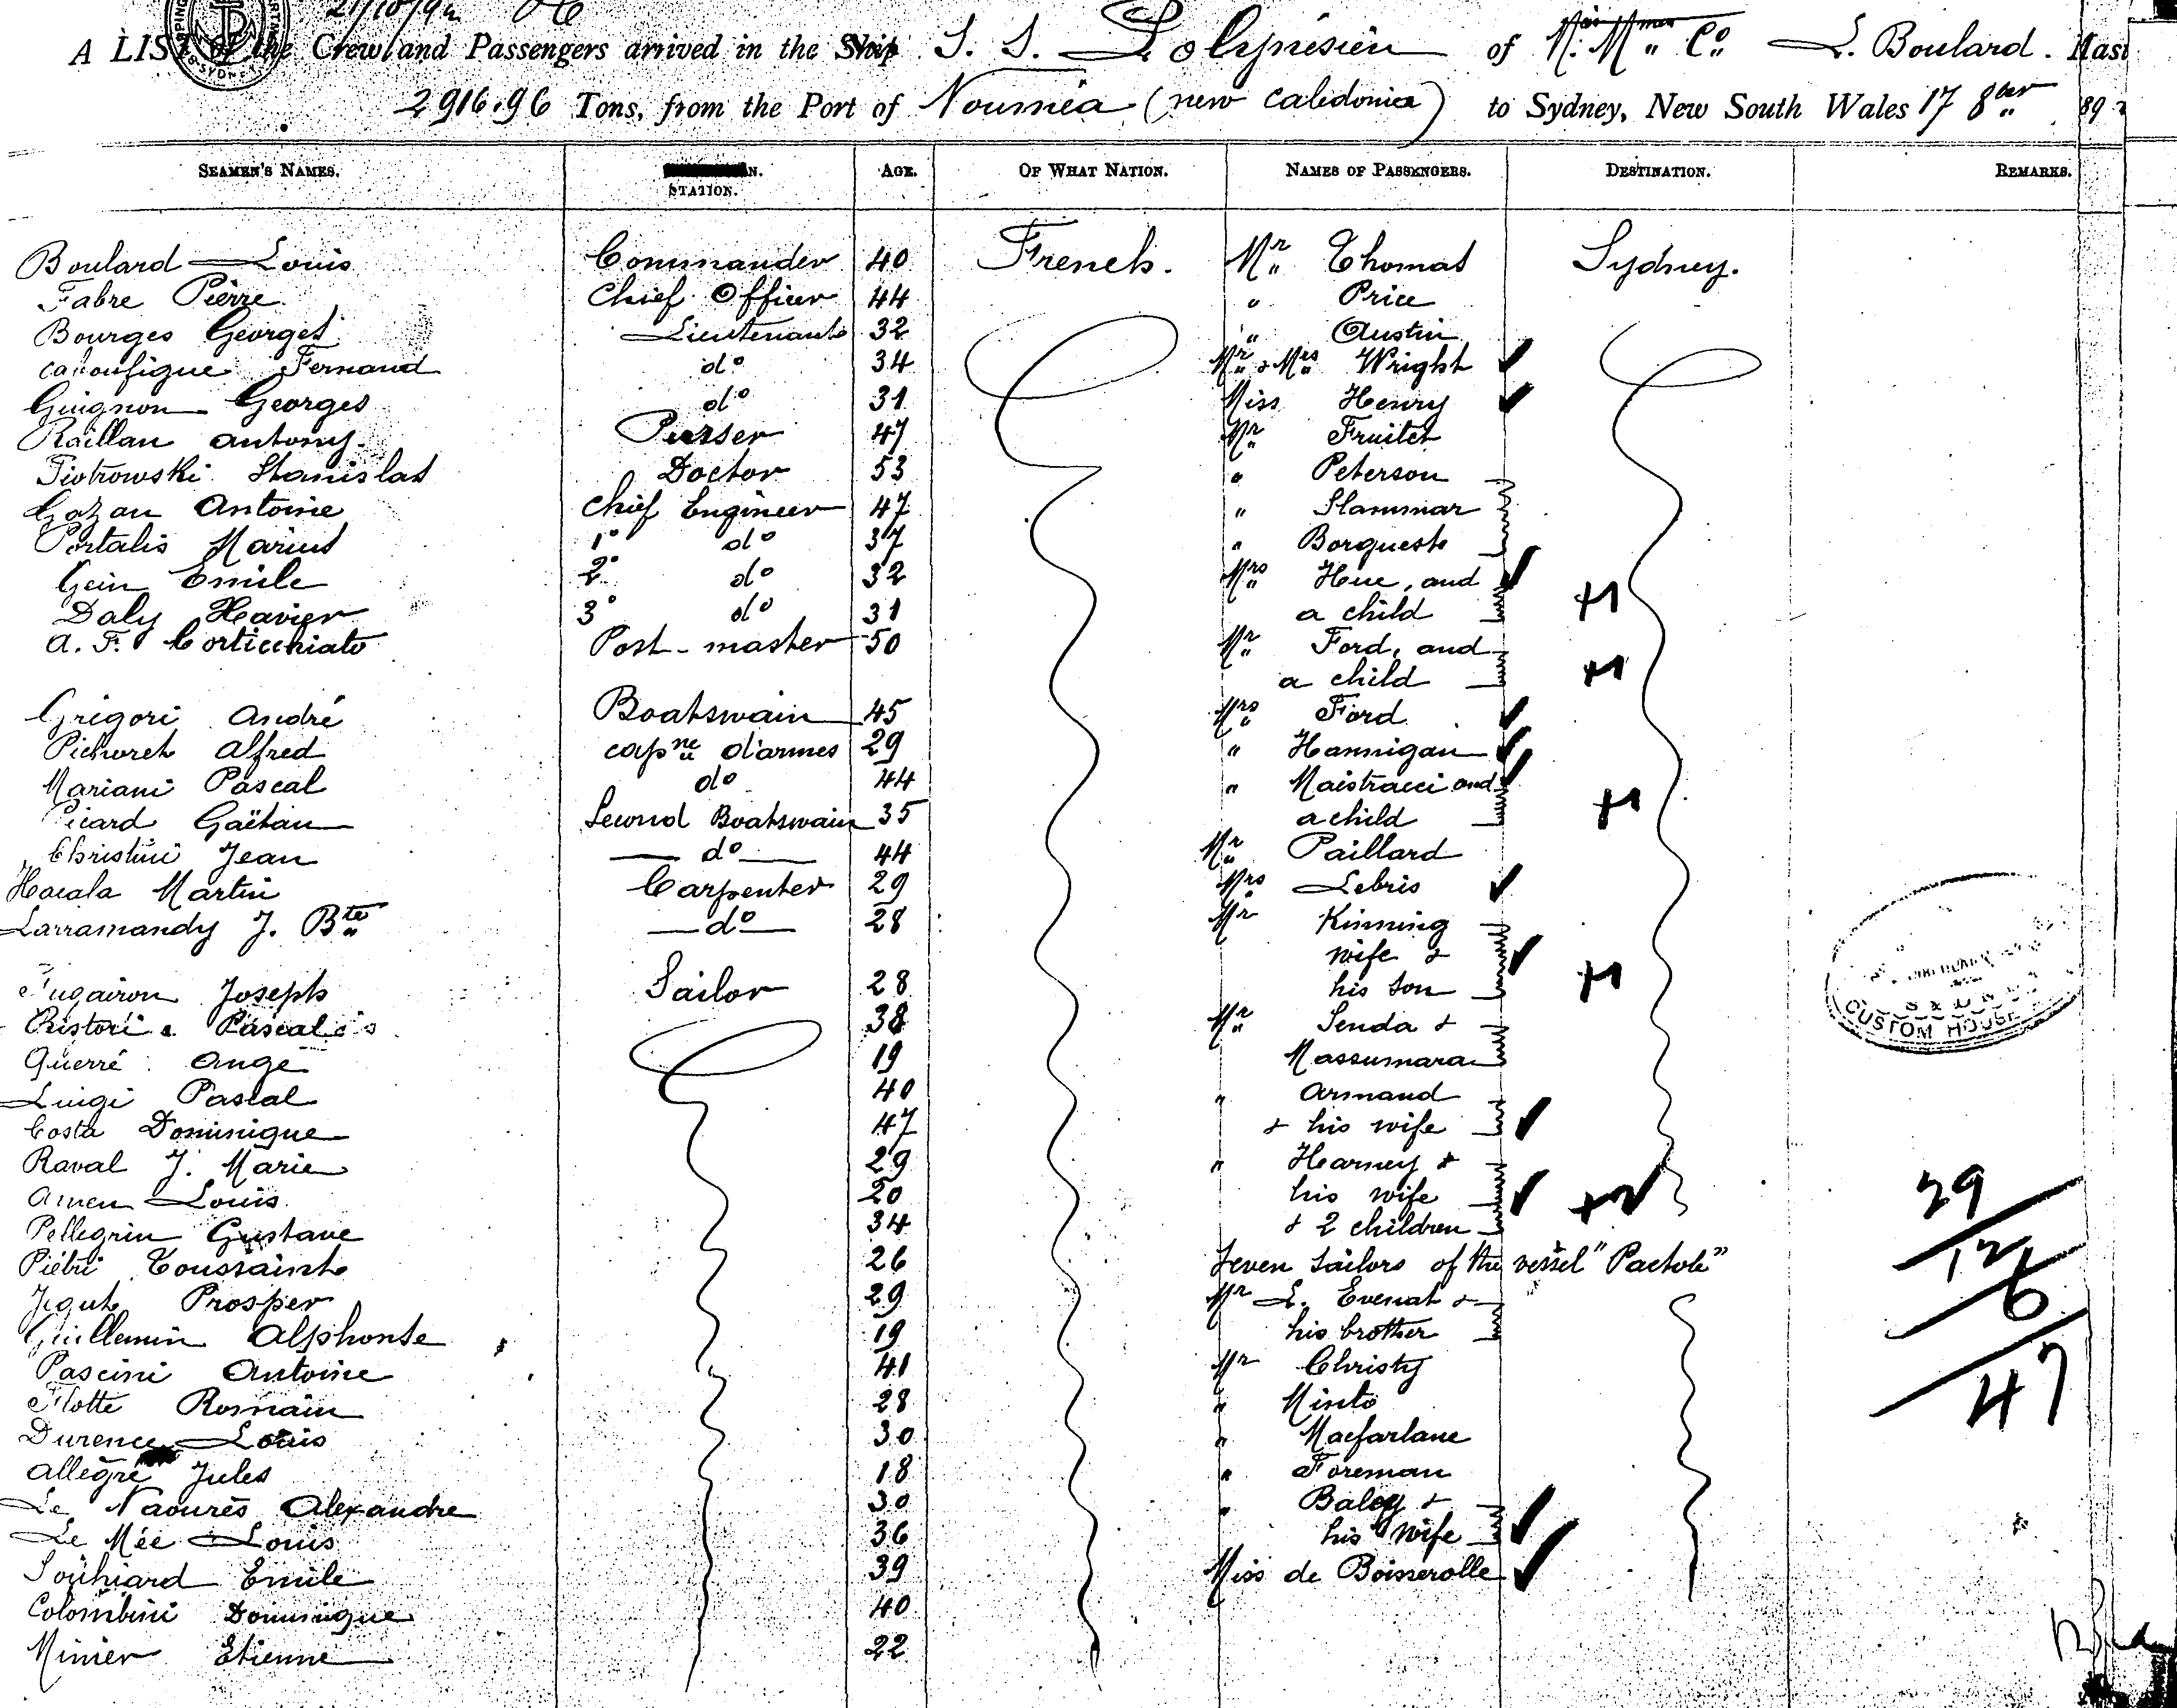 21/10/92
A LIST of the Crew and Passengers arrived in the Ship S. S. Polynésien of M. Mmes Co. L. Boulard. Mast
2916.96 Tons, from the Port of Nouméa (new Caledonia) to Sydney, New South Wales 17 8ber 1892
SEAMEN'S NAMES. STATION. AGE. OF WHAT NATION. NAMES OF PASSENGERS. DESTINATION. REMARKS.
Boulard Louis Commander 40 French. Mr Thomas Sydney.
Fabre Pierre Chief Officer 44 " Price
Bourges Georges Lieutenant 32 " Austin
Fernand do 34 Mr & Mrs Wright
Guignon Georges do 31 Miss Henry
Raillan Antony Purser 47 Mr Fruitet
Piotrowski Stanislas Doctor 53 " Peterson
Gazan Antoine Chief Engineer 47 " Slammar
Portalis Marius 1° do 37 " Borquest
Gein Emile 2° do 32 Mrs Hue, and
Daly Xavier 3° do 31 a child +1
A. F. Corticchiato Post-master 50 Mr Ford, and
a child +1
Grigori André Boatswain 45 Mrs Ford
Pichoret Alfred capne d'armes 29 " Hannigan
Mariani Pascal do 44 " Maistracci and
Picard Gaëtan Second Boatswain 35 a child +1
Christini Jean do 44 Mr Paillard
Martin Carpenter 29 Mrs Lebris
Larramandy J. Bte do 28 Mr Kinning
wife &
Fugairon Joseph Sailor 28 his son +1
Ristori Pascal 38 Mr Senda &
Querré Ange 19 Massumara
Luigi Pascal 40 " Armand
Costa Dominique 47 & his wife
Raval J. Marie 29 " Hearney &
Amen Louis 20 his wife +2
Pellegrin Gustave 34 & 2 children
Piétri Toussaint 26 Seven Sailors of the vessel "Pactole"
Jegut Prosper 29 Mr L. Evenat &
Guillemin Alphonse 19 his brother
Pascini Antoine 41 Mr Christy
Flotte Romain 28 " Minto
Durence Louis 30 " Macfarlane
Allègre Jules 18 " Foreman
Le Naourès Alexandre 30 " Baley &
Le Mée Louis 36 his wife
Souhiard Emile 39 Miss de Boisserolle
Colombini Dominique 40
Minier Etienne 22
29
12
6
47
CUSTOM HOUSE